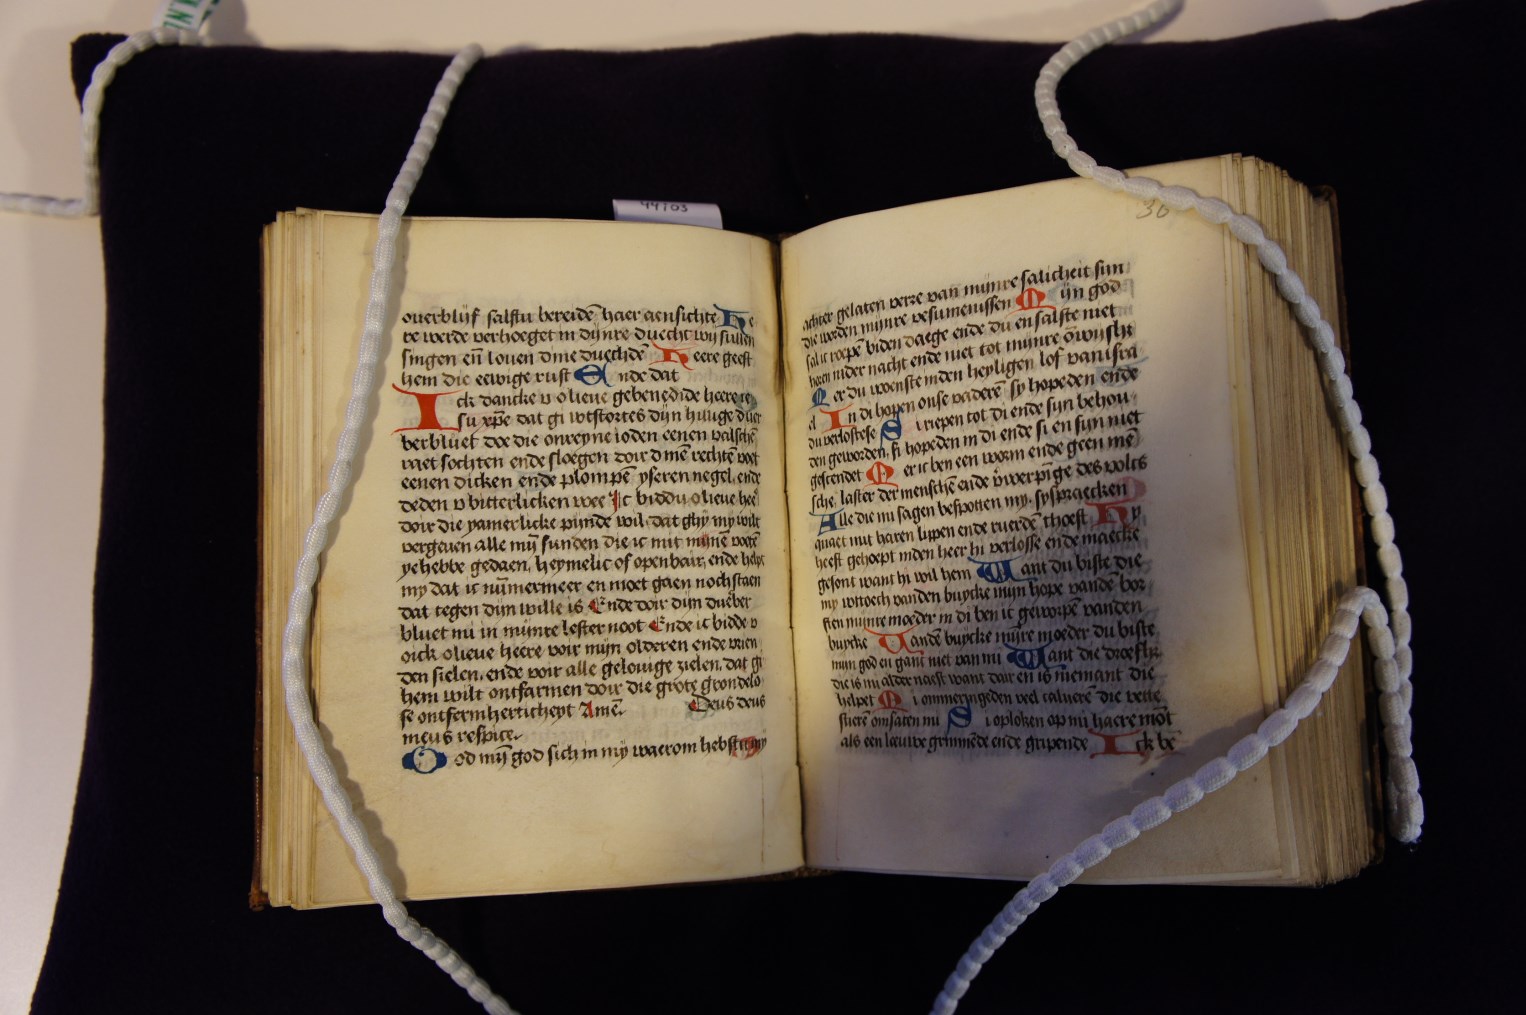 44Y03
ouerblijf salstu bereidē haer aensichte He
re werde verhoeget in dijnre duecht wij sullen
singen en̄ louen dine duechde Heere geeft
hem die eewige rust Ende dat
Ick dancke v o lieue gebenedide heere ie
su xp̄e dat gi wtstortes dijn huuge duer
berbluet doe die onreyne ioden eenen valschē
raet sochten ende sloegen doir dinē rechtē voet
eenen dicken ende plompē yseren negel, ende
deden v bitterlicken wee Ic biddu o lieue hee
doir die yamerlicke pijnde wil dat ghy my wilt
vergeuen alle mij sunden die ic mit mijnē voetē
ye hebbe gedaen, heymelic of openbair, ende helpt
my dat ic nūmermeer en moet gaen noch staen
dat tegen dijn wille is Ende doir dijn dueber
bluet mi in mijnre lester noot Ende ic bidde v
oick o lieue heere voir mijn olderen ende vrien
den sielen, ende voir alle gelouige zielen, dat gi
hem wilt ontfarmen doir die grote grondelo
se ontfermherticheyt Amē. Deus deus
meus respice.
God mijn god sich in my waerom hebstu my
30
achter gelaten verre van mijnre salicheit sijn
die worden mijnre versumenissen Mijn god
sal ic roepē biden daege ende du en salste niet
horen in der nacht ende niet tot mijnre ōwijsht
Mer du woenste inden heyligen lof van isra
el In di hopen onse vaderē sy hopeden ende
du verlostese Si riepen tot di ende sijn behou
den geworden, si hopeden in di ende si en sijn niet
gescendet Mer ic ben een worm ende geen mē
sche, laster der menschē ende v̄werpīge des volcs
Alle die mi sagen bespotten my, sy spraecken
quaet mit haren lippen ende ruerdē thoeft Hy
heeft gehoept inden heer hi verlosse ende maecke
gesont want hi wil hem Want du biste die
my wttoech vanden buycke mijn hope vandē bor
sten mijnre moeder in di ben ic geworpē vanden
buycke Vandē buycke mijre moeder du biste
mijn god en gant niet van mi Want die droefh
die is mi alder naest want dair en is niemant die
helpet Mi ommeringeden veel calueren̄ die vette
stieren omsaten mi Si oploken op mi haere mōt
als een leeuwe grimmēde ende gripende Ick be